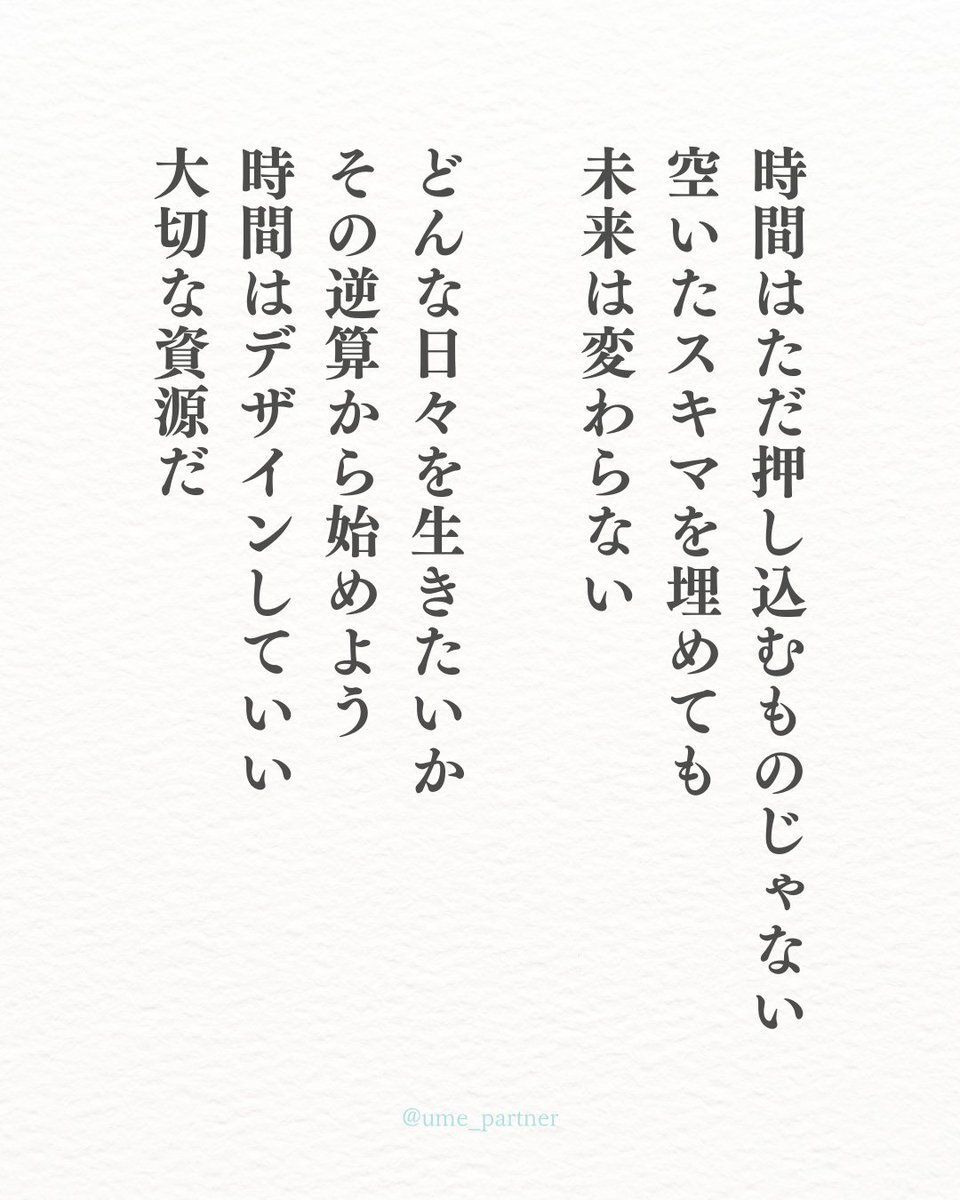 時間はただ押し込むものじゃない
空いたスキマを埋めても
未来は変わらない
どんな日々を生きたいか
その逆算から始めよう
時間はデザインしていい
大切な資源だ
@ume_partner